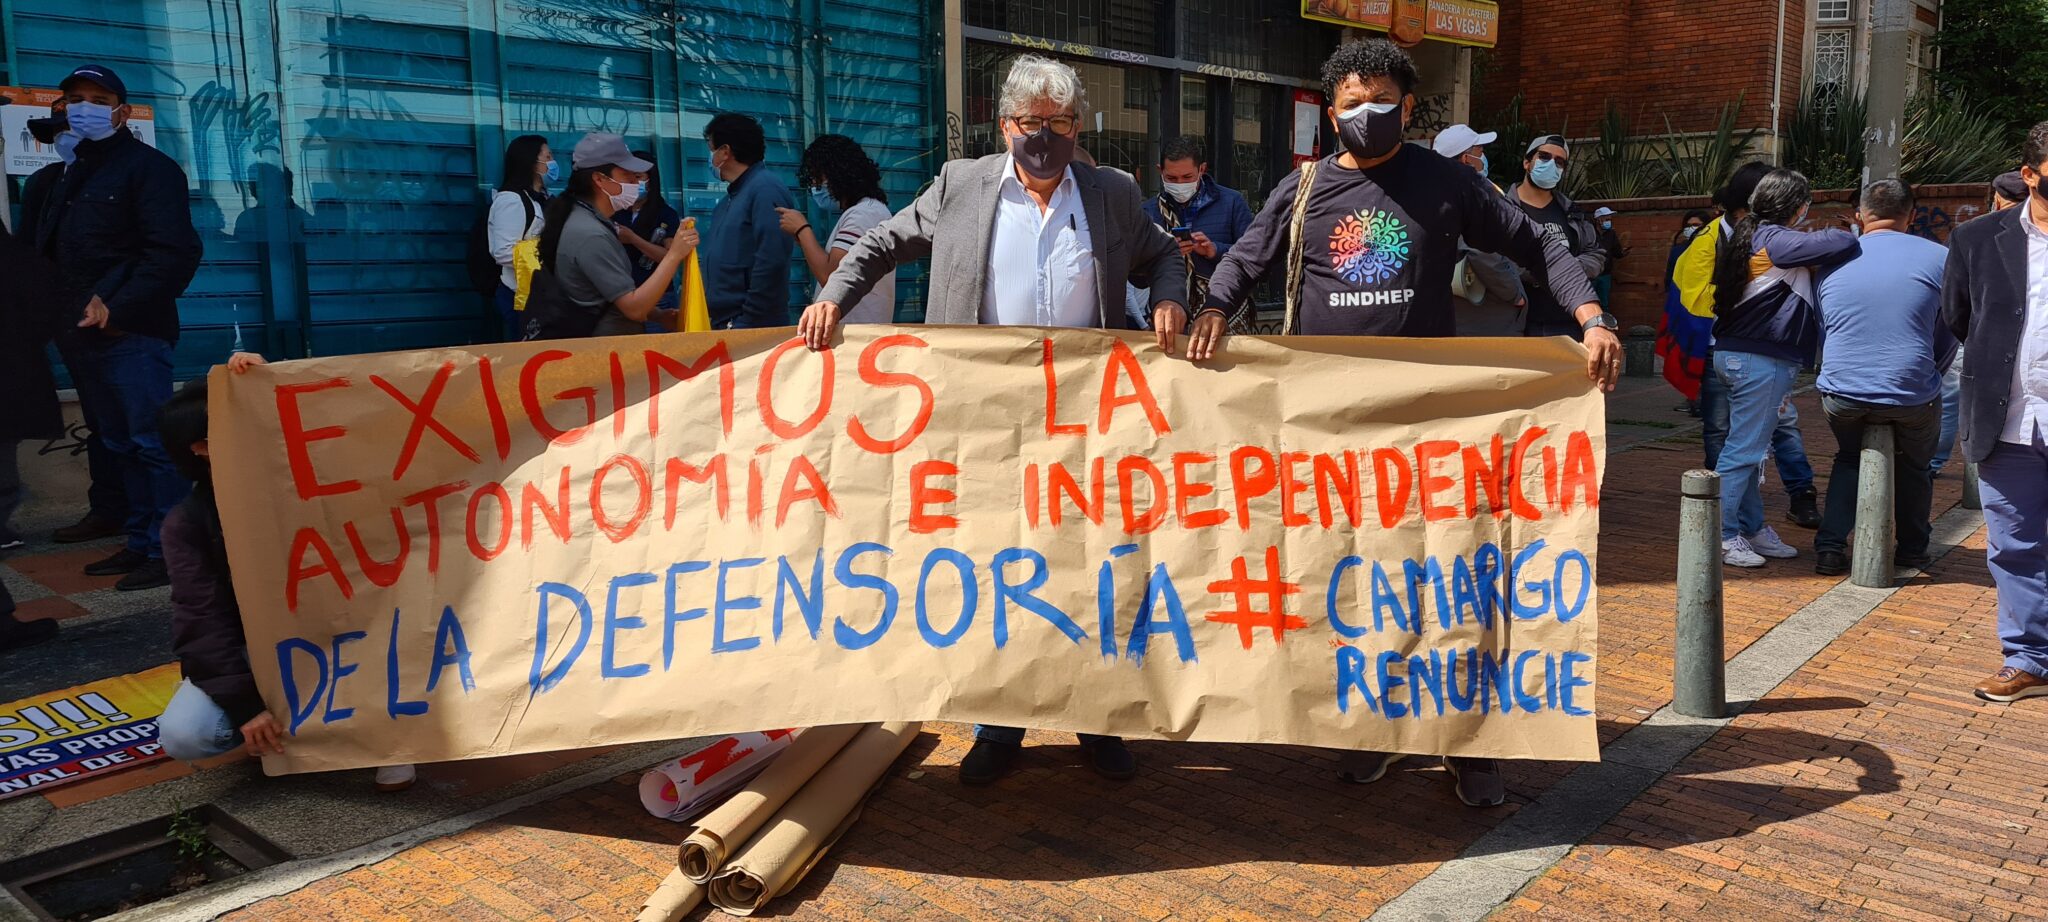 PANADERIA Y CAFETERIA
LAS VEGAS
SINDHEP
EXIGIMOS LA
AUTONOMÍA E INDEPENDENCIA
DE LA DEFENSORÍA # CAMARGO
RENUNCIE
S!!!
TAS PROP
NAL DE P